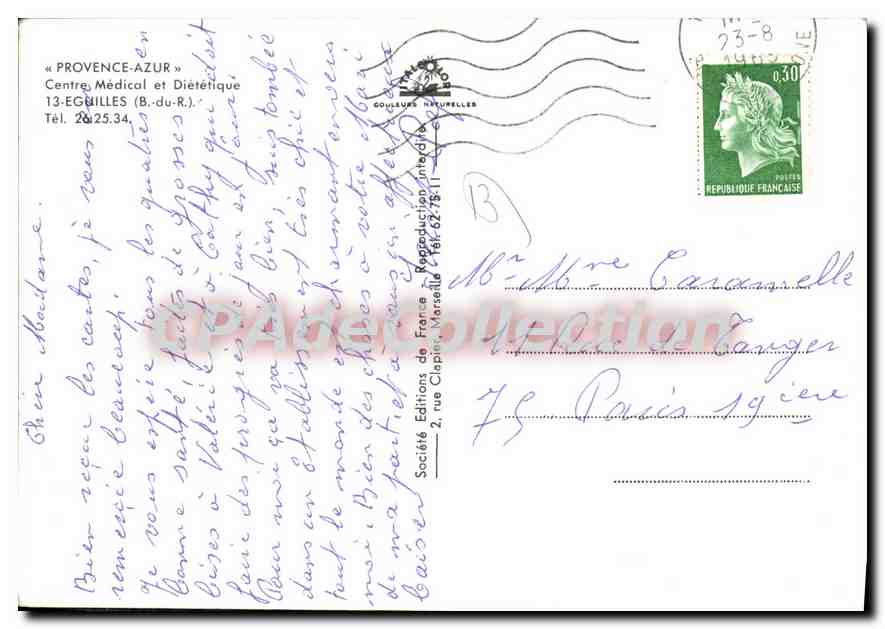 « PROVENCE-AZUR »
Centre Médical et Diététique
13-EGUILLES (B.-du-R.).
Tél. 26.25.34.
ITALCOLOR
COULEURS NATURELLES
23-8
0,30
POSTES
REPUBLIQUE FRANÇAISE
Chère Madame.
Bien reçue les cartes, je vous en
remercie beaucoup.
Je vous espère tous les quatres en
bonne santé, faites de grosses
bises à Valérie et à Cathy qui doit
faire des progrès de jour en jour.
Pour moi ça va très bien, suis tombée
dans un établissement très chic et
tout le monde est charmant envers
moi. Bien des choses à votre Mari
de ma part, et à vous affectueux
baiser
Société Editions de France - Reproduction interdite
2, rue Clapier, Marseille Tél. 62-75-11
B
Mr Mme Caramelle
Rue de Tanger
75 Paris 19ième
CPAdeCollection